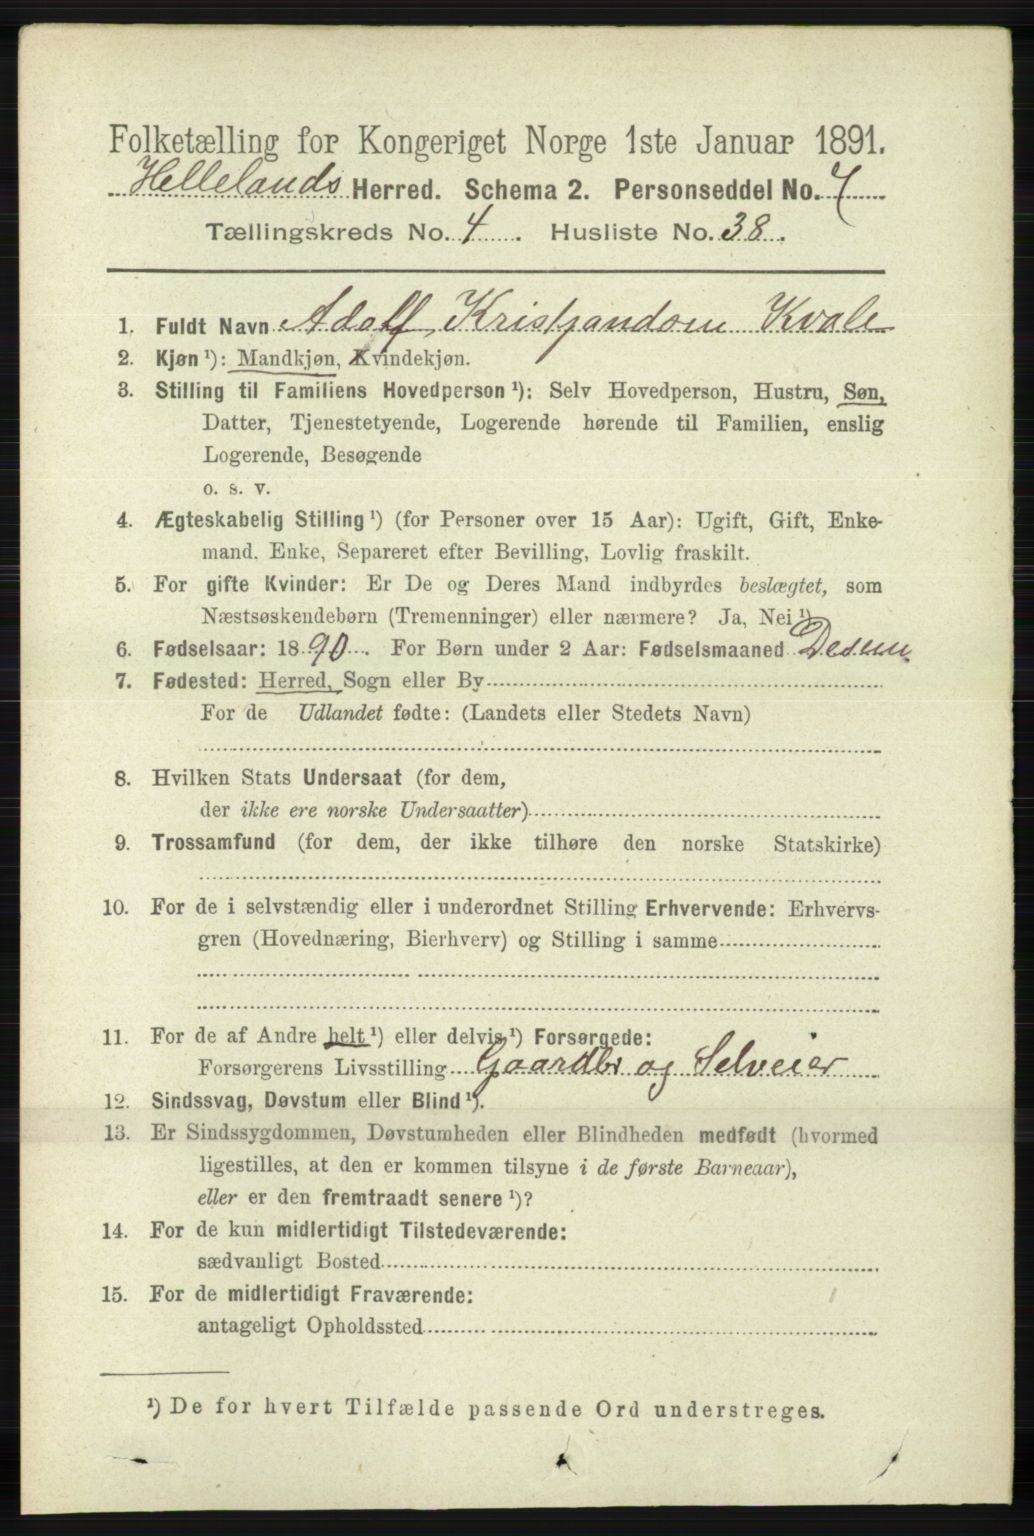 Folketælling for Kongeriget Norge 1ste Januar 1891.
Hellelands Herred. Schema 2. Personseddel No. 7
Tællingskreds No. 4. Husliste No. 38.
1. Fuldt Navn Adolf Kristjandom Kvale
2. Kjøn ¹): Mandkjøn, Kvindekjøn.
3. Stilling til Familiens Hovedperson ¹): Selv Hovedperson, Hustru, Søn,
Datter, Tjenestetyende, Logerende hørende til Familien, enslig
Logerende, Besøgende
o. s. v.
4. Ægteskabelig Stilling ¹) (for Personer over 15 Aar): Ugift, Gift, Enke-
mand, Enke, Separeret efter Bevilling, Lovlig fraskilt.
5. For gifte Kvinder: Er De og Deres Mand indbyrdes beslægtet, som
Næstsøskendebørn (Tremenninger) eller nærmere? Ja, Nei ¹)
6. Fødselsaar: 1890. For Børn under 2 Aar: Fødselsmaaned
7. Fødested: Herred, Sogn eller By
For de Udlandet fødte: (Landets eller Stedets Navn)
8. Hvilken Stats Undersaat (for dem,
der ikke ere norske Undersaatter)
9. Trossamfund (for dem, der ikke tilhøre den norske Statskirke)
10. For de i selvstændig eller i underordnet Stilling Erhvervende: Erhvervs-
gren (Hovednæring, Bierhverv) og Stilling i samme
11. For de af Andre helt ¹) eller delvis ¹) Forsørgede:
Forsørgerens Livsstilling Gaardbr og Selveier
12. Sindssvag, Døvstum eller Blind ¹).
13. Er Sindssygdommen, Døvstumheden eller Blindheden medfødt (hvormed
ligestilles, at den er kommen tilsyne i de første Barneaar),
eller er den fremtraadt senere ¹)?
14. For de kun midlertidigt Tilstedeværende:
sædvanligt Bosted
15. For de midlertidigt Fraværende:
antageligt Opholdssted
¹) De for hvert Tilfælde passende Ord understreges.